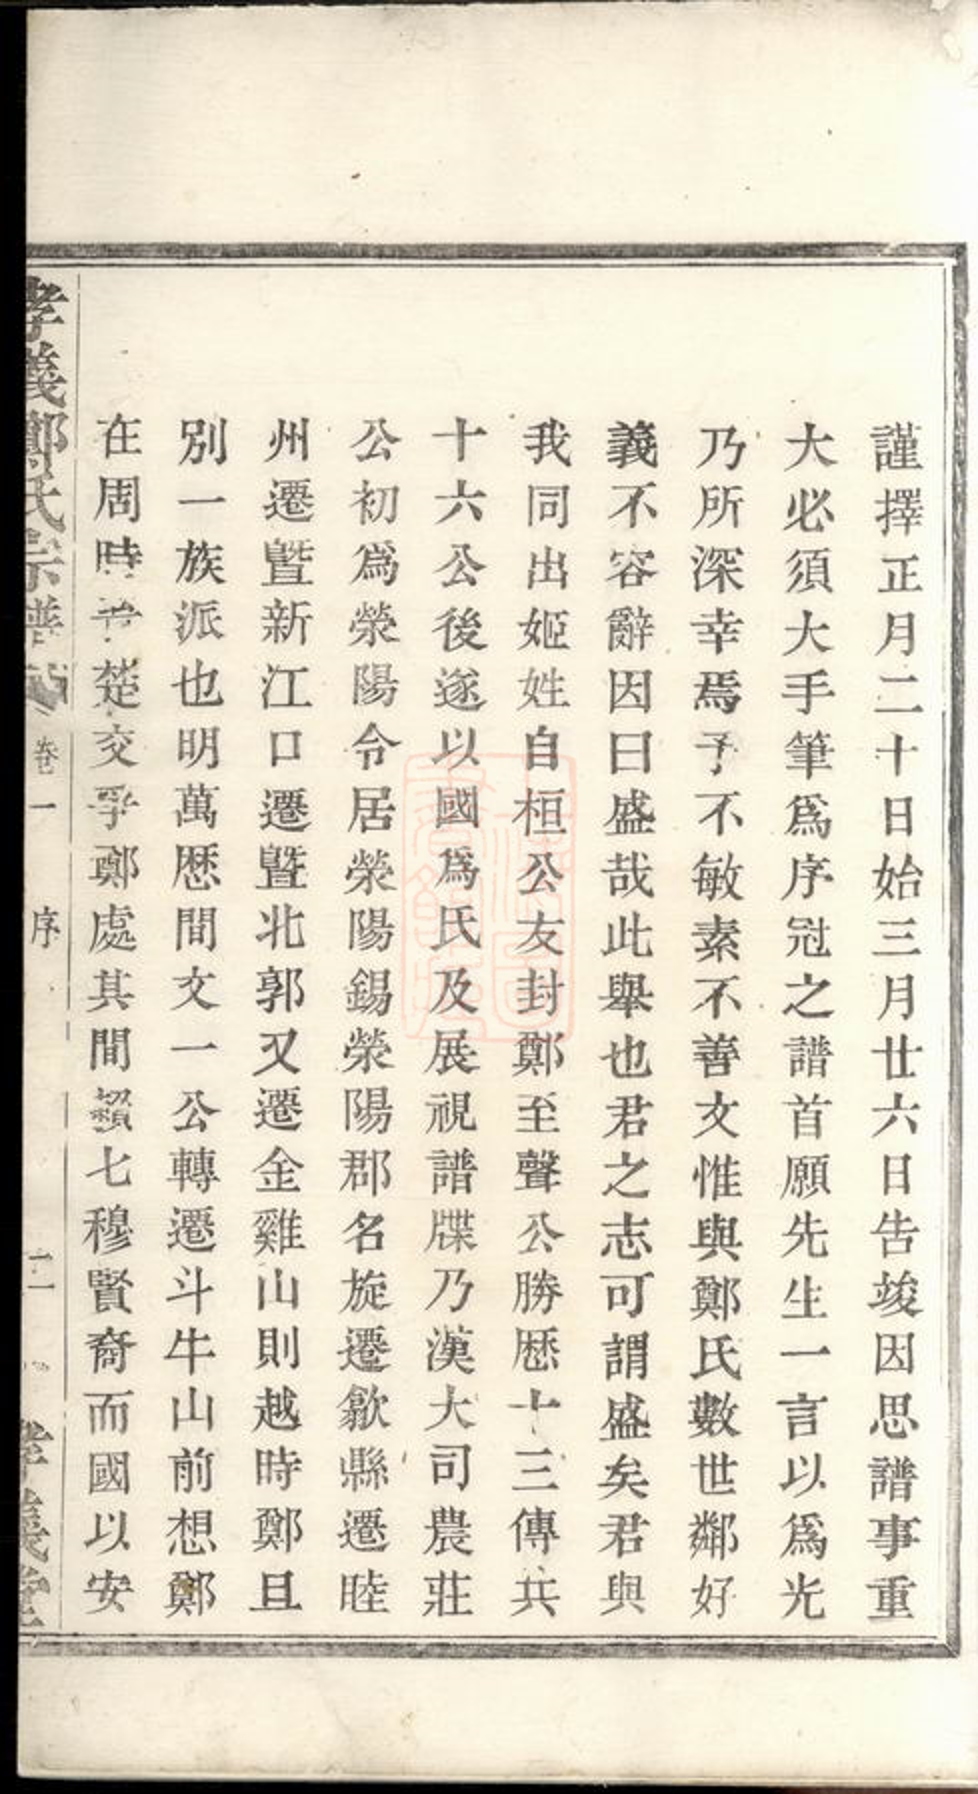 謹擇正月二十日始三月廿六日告竣因思譜事重
大必須大手筆爲序冠之譜首願先生一言以爲光
乃所深幸焉予不敏素不善文惟與鄭氏數世鄰好
義不容辭因曰盛哉此舉也君之志可謂盛矣君與
我同出姬姓自桓公友封鄭至聲公勝歷十三傳共
十六公後遂以國爲氏及展視譜牒乃漢大司農莊
公初爲滎陽令居滎陽錫滎陽郡名旋遷歙縣遷睦
州遷暨新江口遷暨北郭又遷金雞山則越時鄭且
別一族派也明萬歷間文一公轉遷斗牛山前想鄭
在周時晉楚交爭鄭處其間賴七穆賢裔而國以安
孝義鄭氏宗譜 卷一 序 二 孝義堂